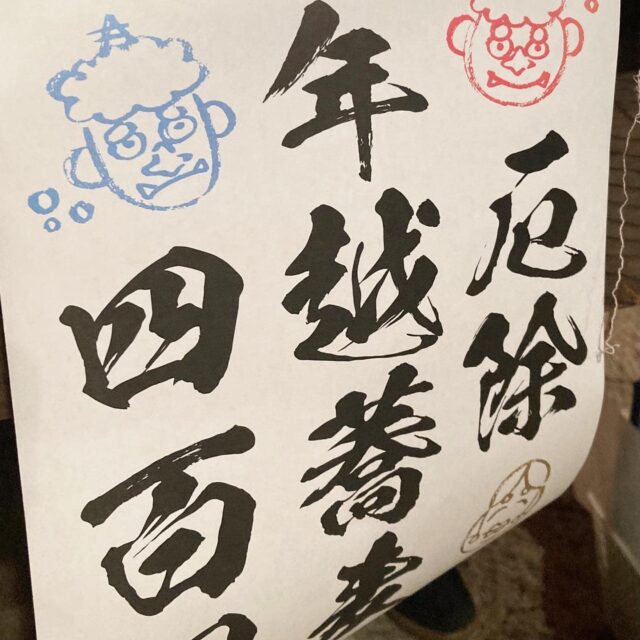 厄除
年越蕎麦
四百